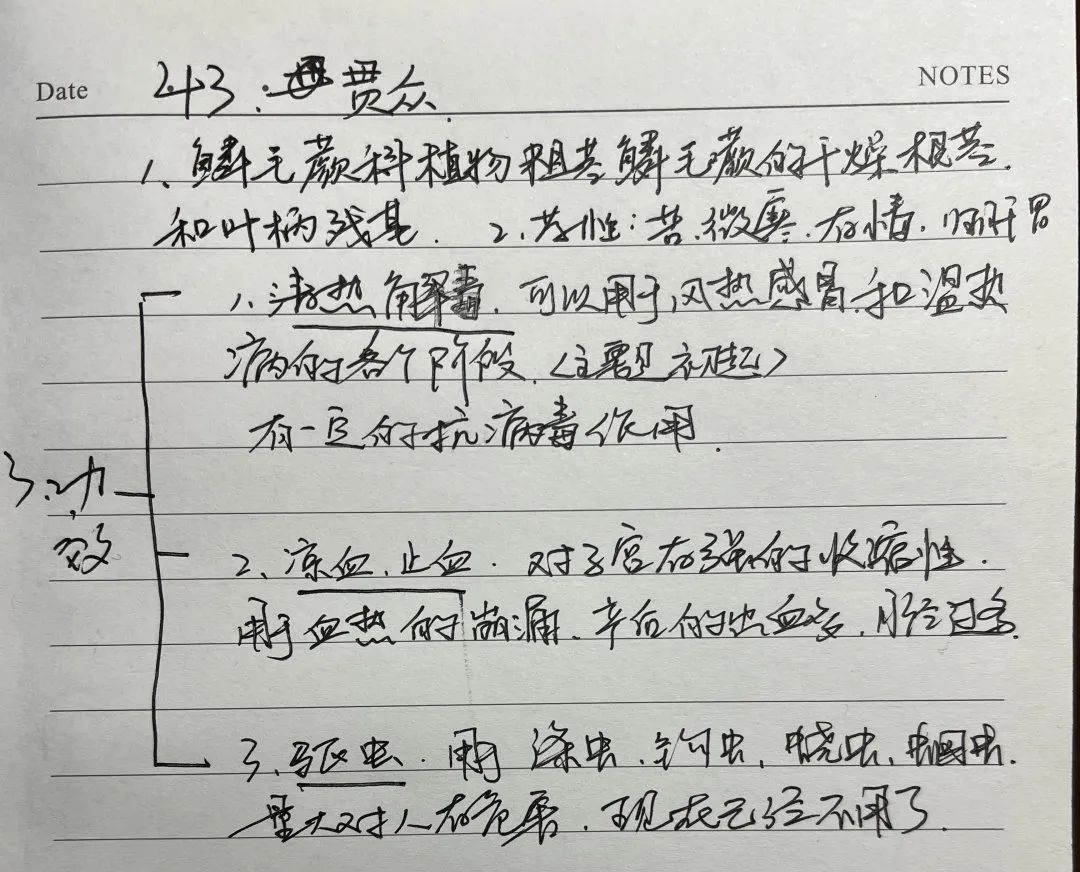 Date 243：贯众 NOTES
1、鳞毛蕨科植物粗茎鳞毛蕨的干燥根茎.
和叶柄残基. 2、药性：苦.微寒.有小毒.归肝胃
1、清热解毒. 可以用于风热感冒.和温热
病的各个阶段.（主要是初起）
有一定的抗病毒作用
3、功
效
2、凉血.止血. 对子宫有强的收缩性.
用于血热的崩漏. 产后的出血多. 月经过多.
3、驱虫. 用于 绦虫.钩虫.蛲虫.蛔虫.
量大对人有危害. 现在已经不用了.